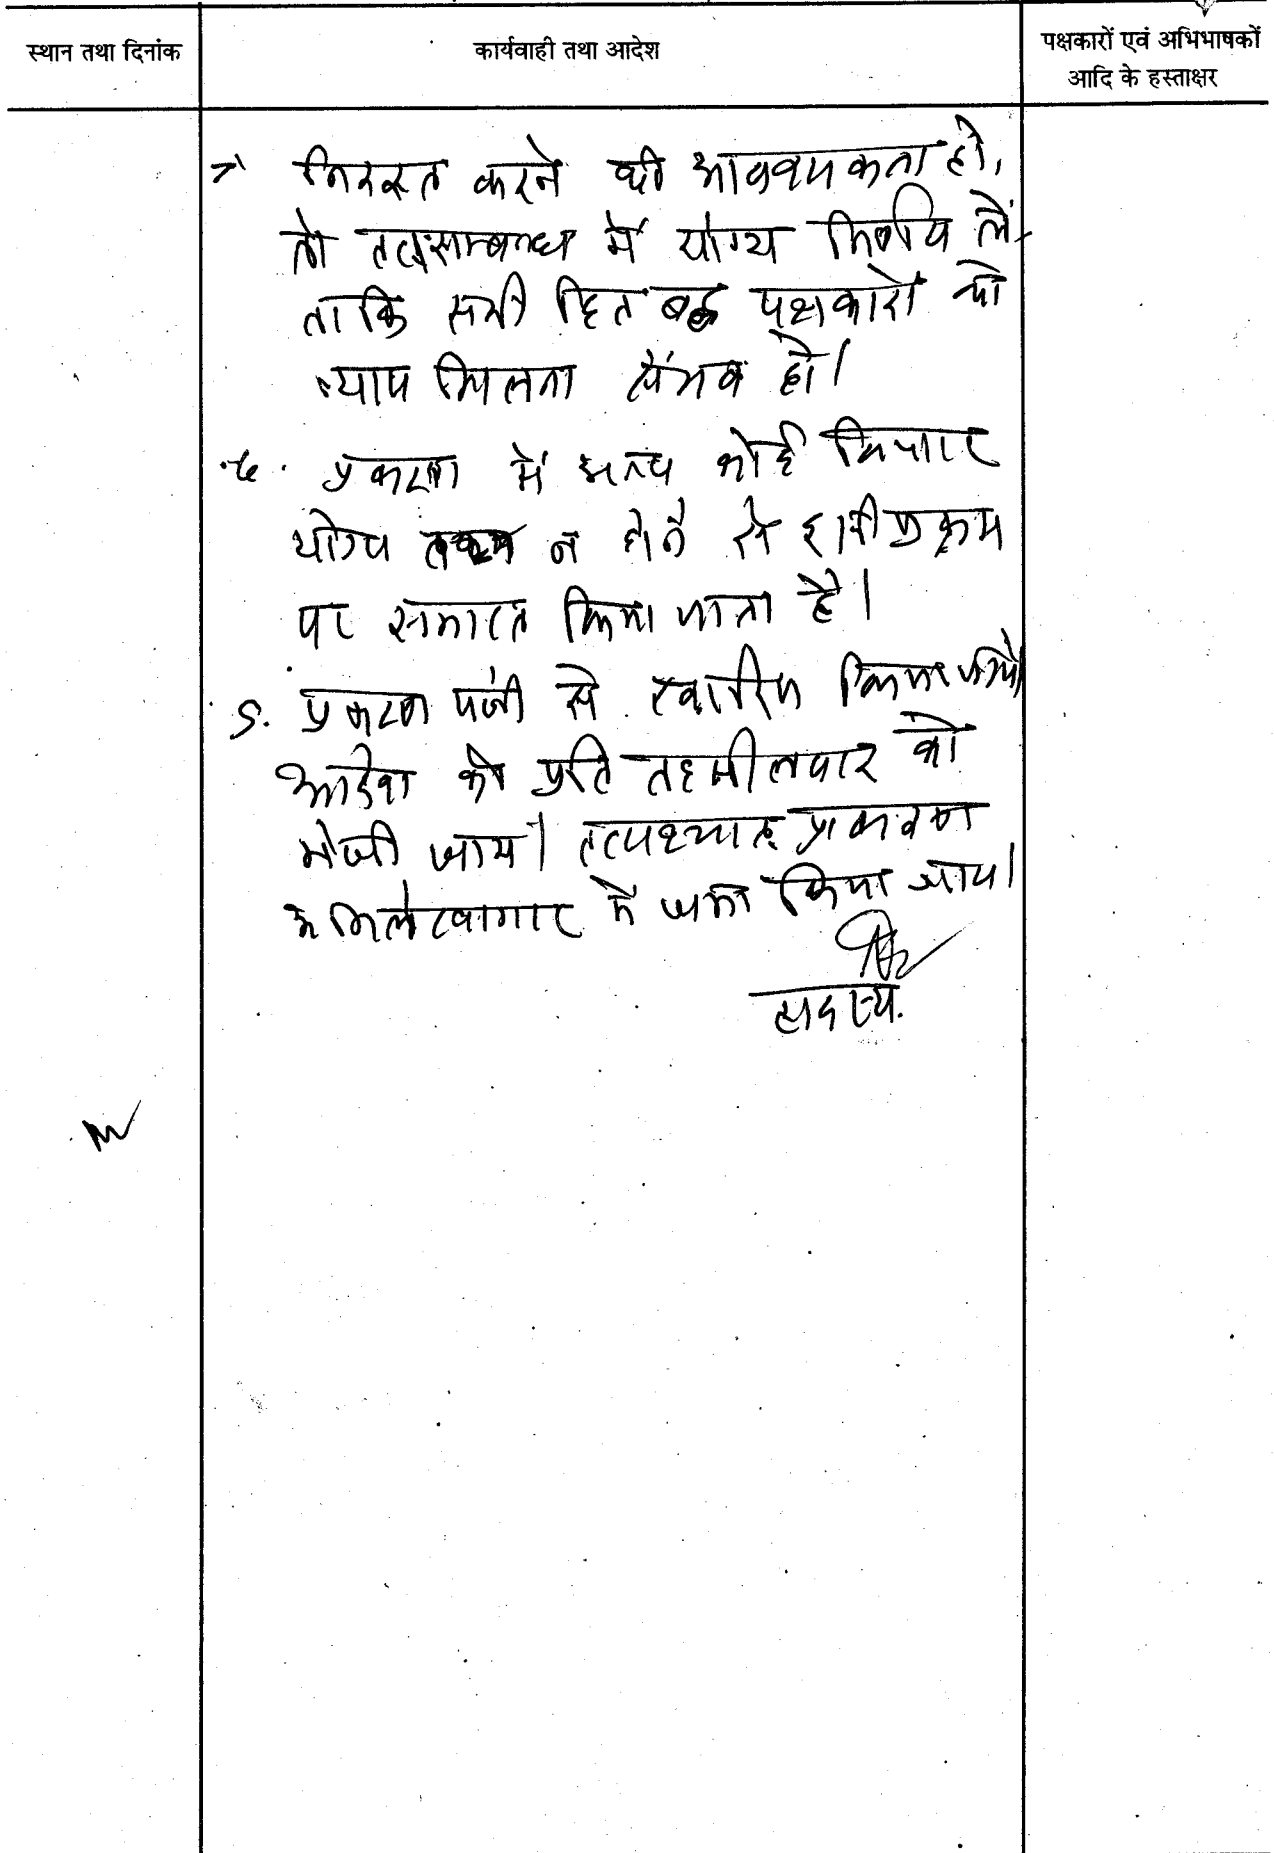 स्थान तथा दिनांक
कार्यवाही तथा आदेश
पक्षकारों एवं अभिभाषकों
आदि के हस्ताक्षर
निरस्त करने की आवश्यकता हो,
तो तत्सम्बन्ध में योग्य निर्णय लें,
ताकि सभी हितबद्ध पक्षकारों को
न्याय मिलना संभव हो।
प्रकरण में अन्य कोई विचार
योग्य न होने से इसी प्रक्रम
पर समाप्त किया जाता है।
5. प्रकरण पंजी से खारिज किया
आदेश की प्रति तहसीलदार को
भेजी जाय। तत्पश्चात् प्रकरण
अभिलेखागार में जमा किया जाय।
सदस्य.